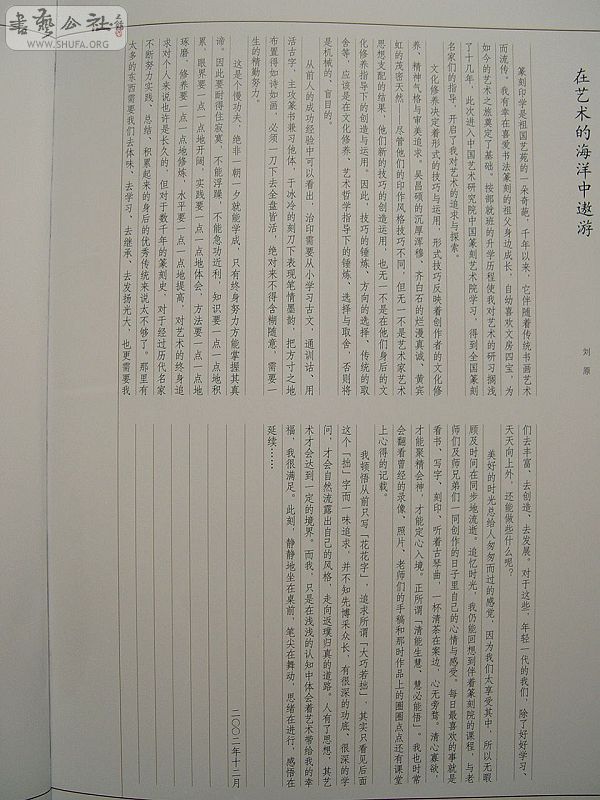 書藝公社
WWW.SHUFA.ORG
在艺术的海洋中遨游
刘原
篆刻印学是祖国艺苑的一朵奇葩,千年以来,它伴随着传统书画艺术
而流传。我有幸在喜爱书法篆刻的祖父身边成长,自幼喜欢文房四宝,为
如今的艺术之旅奠定了基础。按部就班的升学历程使我对艺术的研习搁浅
了十几年,此次进入中国艺术研究院中国篆刻艺术院学习,得到全国篆刻
名家们的指导,开启了我对艺术的追求与探索。
文化修养决定着形式的技巧与运用,形式技巧反映着创作者的文化修
养、精神气格与审美追求。吴昌硕的沉厚浑穆、齐白石的烂漫真诚、黄宾
虹的茂密天然——尽管他们的印作风格技巧不同,但无一不是艺术家艺术
思想支配的结果,他们新的技巧的创造运用,也无一不是在他们身后的文
化修养指导下的创造与运用。因此,技巧的锤炼、方向的选择、传统的取
舍等,应该是在文化修养、艺术哲学指导下的锤炼、选择与取舍,否则将
是机械的、盲目的。
从前人的成功经验中可以看出,治印需要从小学习古文,通训诂、用
活古字,主攻篆书兼习他体,于冰冷的刻刀下表现笔情墨韵,把方寸之地
布置得如诗如画,必须一刀下去全盘皆活,绝对来不得含糊随意,需要一
生的精勤努力。
这是个慢功夫,绝非一朝一夕就能学成,只有终身努力方能掌握其真
谛。因此要耐得住寂寞,不能浮躁,不能急功近利,知识要一点一点地积
累,眼界要一点一点地开阔,实践要一点一点地体会,方法要一点一点地
琢磨,修养要一点一点地修炼,水平要一点一点地提高,对艺术的终身追
求对个人来说也许是长久的,但对于数千年的篆刻史,对于经过历代名家
不断努力实践、总结、积累起来的身后的优秀传统来说太不够了。那里有
太多的东西需要我们去体味、去学习、去继承、去发扬光大,也更需要我
们去丰富、去创造、去发展。对于这些,年轻一代的我们,除了好好学习、
天天向上外,还能做些什么呢?
美好的时光总给人匆匆而过的感觉,因为我们太享受其中,所以无暇
顾及时间在同步地流逝。追忆时光,我仍能回想到伴着篆刻院的课程,与老
师们及师兄弟们一同创作的日子里自己的心情与感受。每日最喜欢的事就是
看书、写字、刻印、听着古琴曲,一杯清茶在案边,心无旁骛。清心寡欲,
才能聚精会神,才能定心入境。正所谓「清能生慧,慧必能悟」。我也时常
会翻看曾经的录像、照片、老师们的手稿和那时作品上的圈圈点点还有课堂
上心得的记载。
我顿悟从前只写「花花字」,追求所谓「大巧若拙」,其实只看见后面
这个「拙」字而一味追求,并不知先博采众长、有很深的功底、很深的学
问,才会自然流露出自己的风格,走向返璞归真的道路。人有了思想,其艺
术才会达到一定的境界。而我,只是在浅浅的认知中体会着艺术带给我的幸
福,我很满足。此刻,静静地坐在桌前,笔尖在舞动,思绪在进行,感悟在
延续……